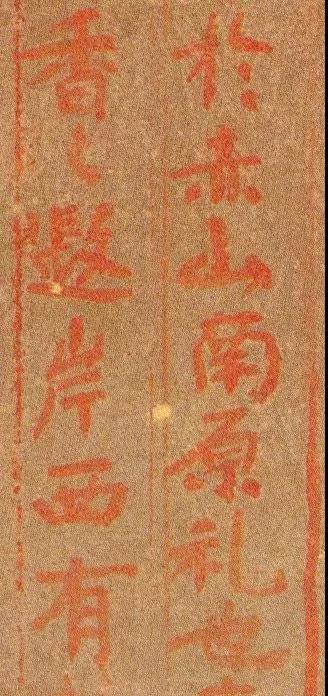 於赤山南原礼也
香〻遐岸西有